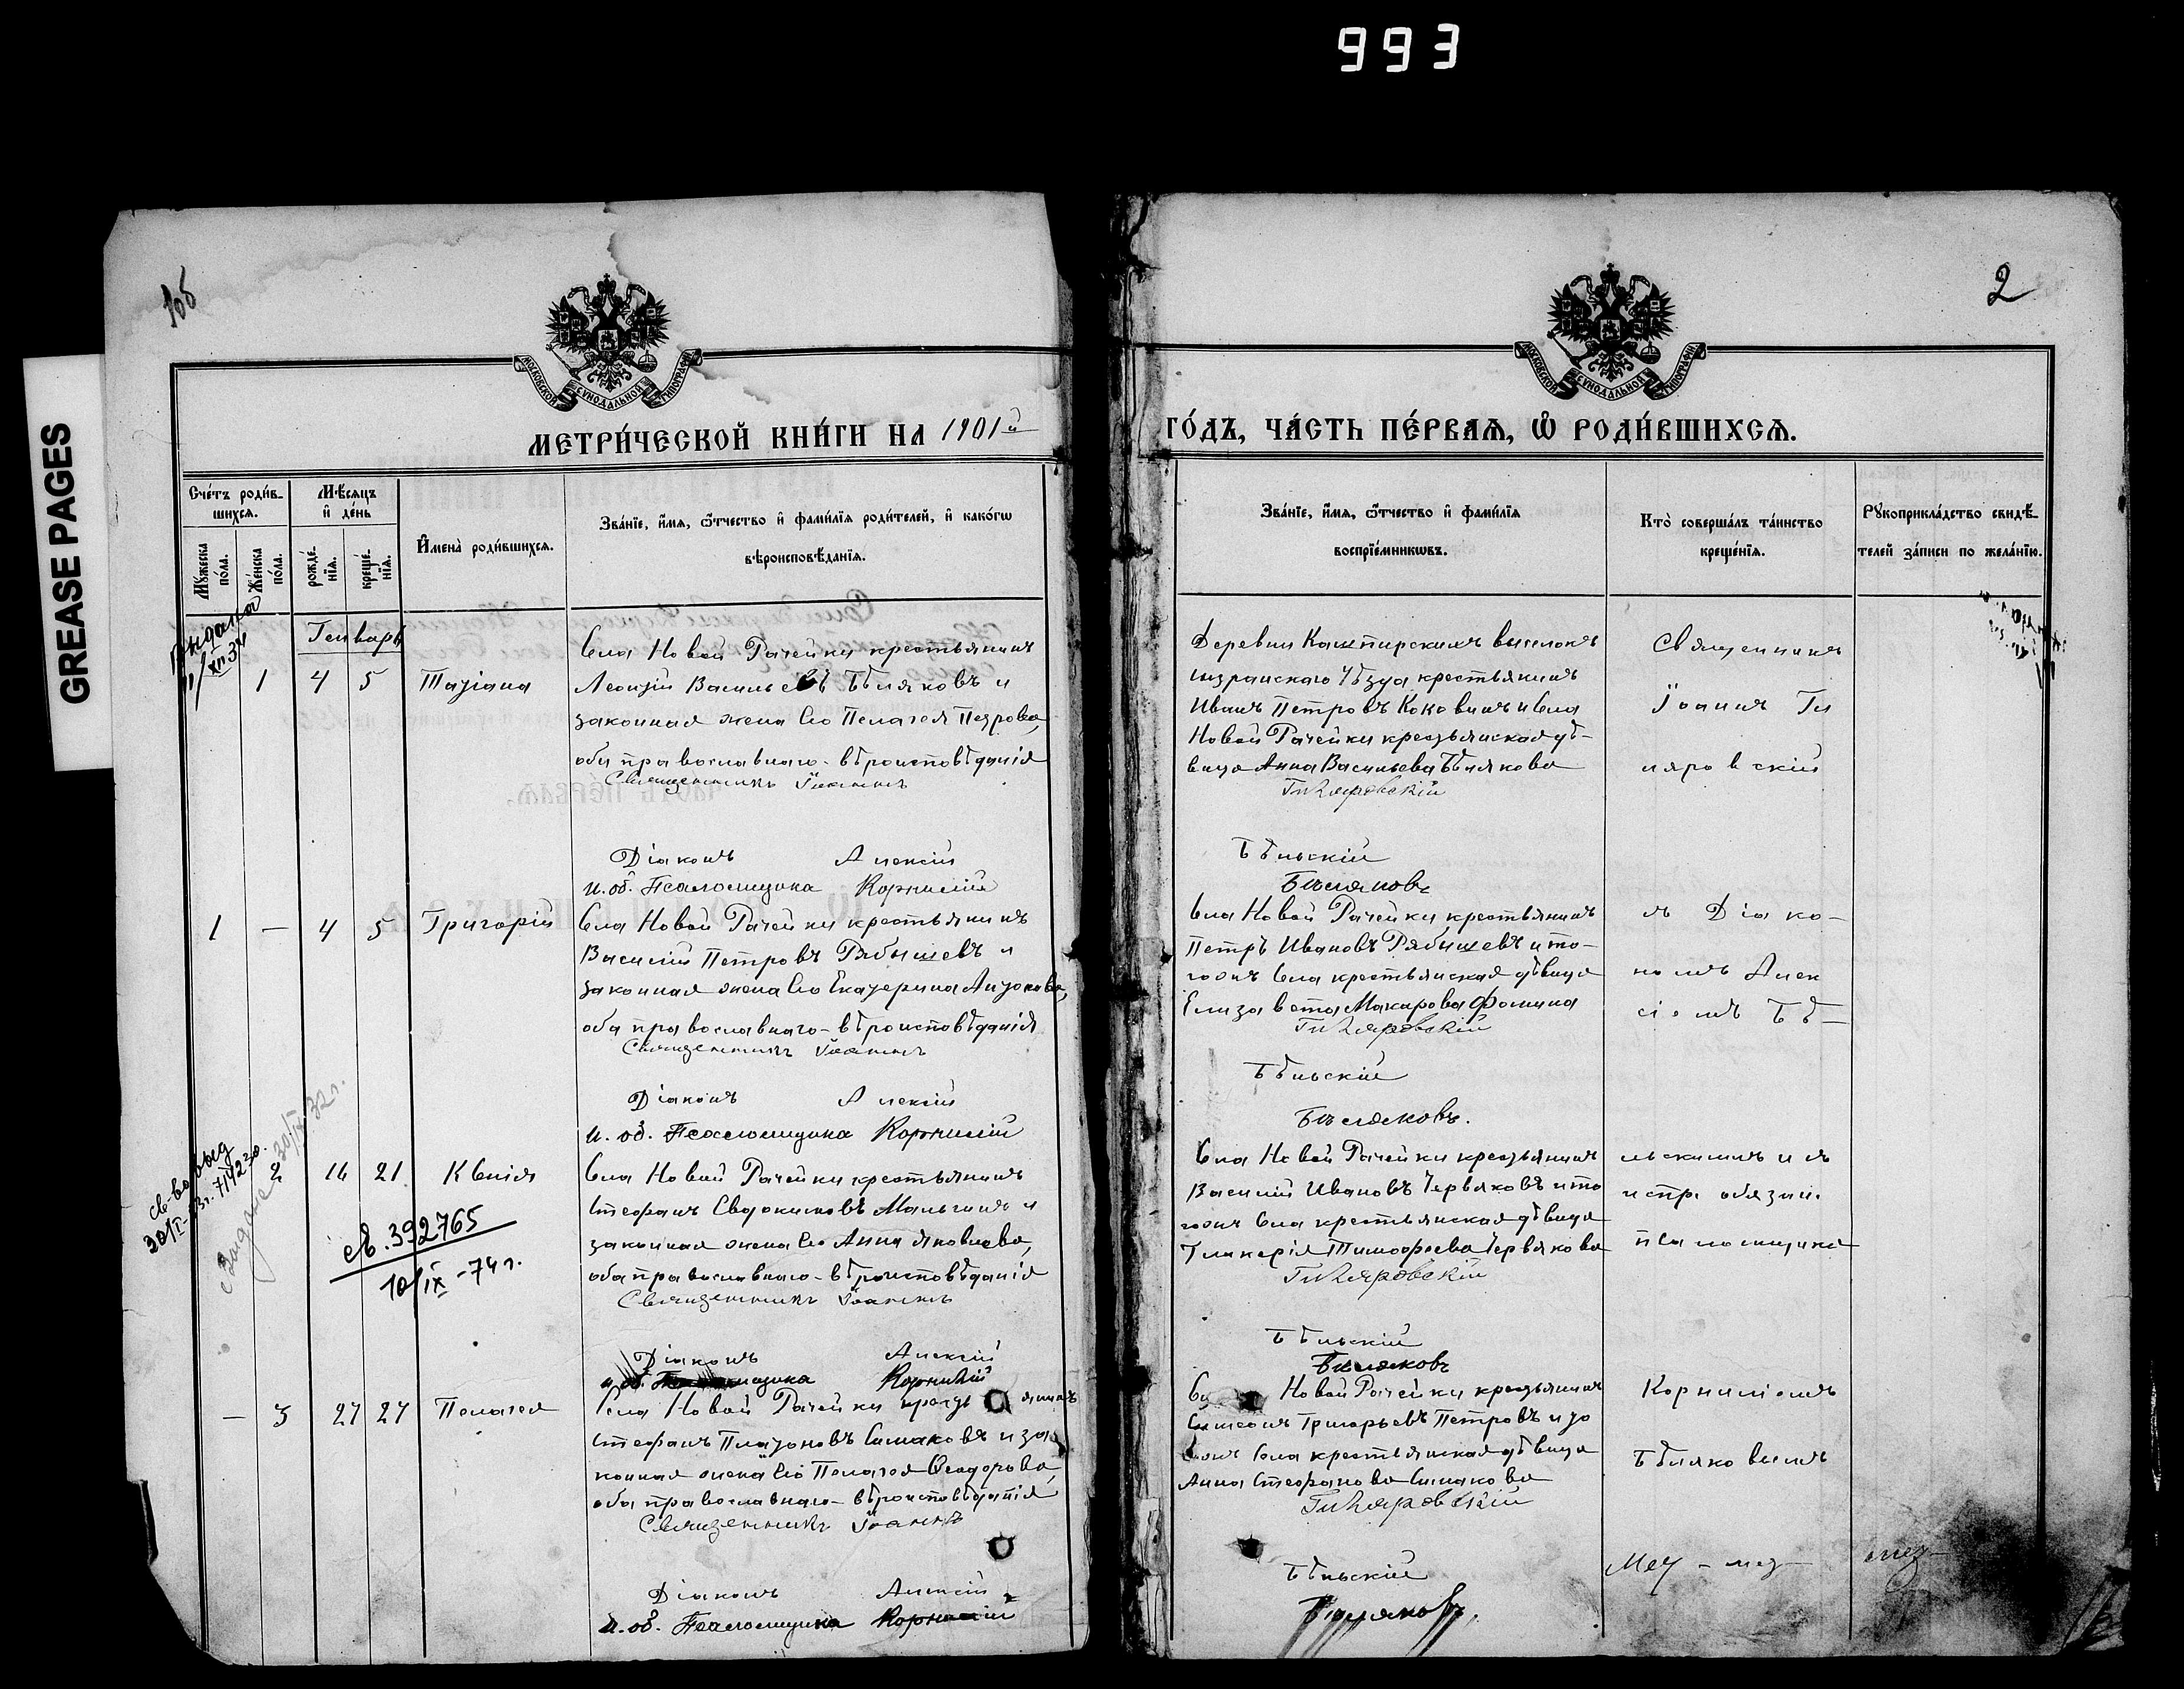 993
GREASE PAGES
1об
2
МОСКОВСКОЙ СѴНОДАЛЬНОЙ ТИПОГРАФІИ
МОСКОВСКОЙ СѴНОДАЛЬНОЙ ТИПОГРАФІИ
МЕТРИ́ЧЕСКОЙ КНИ́ГИ НА 1901й
ГО́ДЪ, ЧА́СТЬ ПЕ́РВАѦ, Ѿ РОДИ́ВШИХСѦ.
Сче́тъ роди́в-
шихсѧ.
Мѣ́сѧцъ
и҆ де́нь
Мꙋ́жеска
по́ла.
Же́нска
по́ла.
рожде́-
нїѧ.
креще́-
нїѧ.
И҆мена̀ роди́вшихсѧ.
Зва́нїе, и҆́мѧ, ѻ҆́тчество и҆ фами́лїѧ роди́телей, и҆ како́гѡ
вѣроисповѣ́данїѧ.
Зва́нїе, и҆́мѧ, ѻ҆́тчество и҆ фами́лїѧ
воспрїе́мникѡвъ.
Кто̀ соверша́лъ та́инство
креще́нїѧ.
Рꙋкоприкла́дство свидѣ́-
телей за́писи по жела́нїю.
Генварь
1 4 5 Татіана
Села Новой Рачейки крестьянинъ
Леонтій Васильевъ Бѣляковъ и
законная жена его Пелагея Петрова,
оба православнаго вѣроисповѣданія
Священникъ Іоаннъ
Діаконъ Алексій
и. об. Псаломщика Корнилій
Деревни Кашпирскихъ выселокъ
сызранскаго уѣзда крестьянинъ
Иванъ Петровъ Коковинъ и села
Новой Рачейки крестьянская дѣ-
вица Анна Васильева Бѣлякова
Гиляровскій
Бѣльскій
Бѣляковъ
Священникъ
Іоаннъ Ги
ляровскій
1 — 4 5 Григорій
Села Новой Рачейки крестьянинъ
Василій Петровъ Рябышевъ и
законная жена его Екатерина Антонова,
оба православнаго вѣроисповѣданія
Священникъ Іоаннъ
Діаконъ Алексій
и. об. Псаломщика Корнилій
Села Новой Рачейки крестьянинъ
Петръ Ивановъ Рябышевъ и то-
гожъ села крестьянская дѣвица
Елизавета Макарова Фомина
Гиляровскій
Бѣльскій
Бѣляковъ.
съ Діако-
номъ Алек
сіемъ Бѣ-
2 16 21 Ксенія
св. 392765
10/IX - 74 г.
Села Новой Рачейки крестьянинъ
Стефанъ Евдокимовъ Малыгинъ и
законная жена его Анна Яковлева,
оба православнаго вѣроисповѣданія
Священникъ Іоаннъ
Діаконъ Алексій
и. об. Псаломщика Корнилій
Села Новой Рачейки крестьянинъ
Василій Ивановъ Червяковъ и то
гожъ села крестьянская дѣвица
Гликерія Тимофеева Червякова
Гиляровскій
Бѣльскій
Бѣляковъ
льскимъ и съ
испр. обязан.
псаломщика
— 3 27 27 Пелагея
Села Новой Рачейки крестьянинъ
Стефанъ Платоновъ Симаковъ и за-
конная жена его Пелагея Ѳеодорова,
оба православнаго вѣроисповѣданія
Священникъ Іоаннъ
Діаконъ Алексій
и. об. Псаломщика Корнилій
Новой Рачейки крестьянинъ
Симеонъ Григорьевъ Петровъ и то
гожъ села крестьянская дѣвица
Анна Стефанова Симакова
Гиляровскій
Бѣльскій
Бѣляковъ.
Корниліемъ
Бѣляковымъ